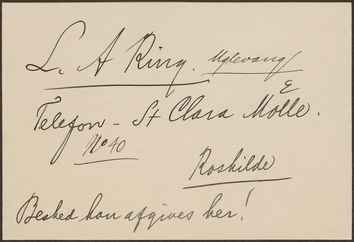 L. A Ring. Uglevang
E
Telefon - St Clara Mølle.
No 40
Roskilde
Besked kan afgives her!